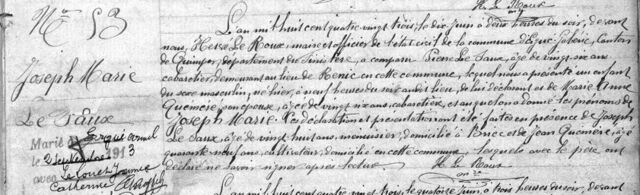 H. Le Roux
No 53
Joseph Marie
Le Faux
Marié à Ergué Armel
le 2 septembre 1913
avec
Catherine
L'an mil huit cent quatre vingt trois, le dix juin à deux heures du soir, devant
nous, Hervé Le Roux, maire et officier de l'état civil de la commune d'Ergué-Gabéric, Canton
de Quimper, département du Finistère, a comparu Pierre Le Faux, âgé de vingt six ans
cabaretier, demeurant au lieu de en cette commune, lequel nous a présenté un enfant
du sexe masculin, né hier, à neuf heures du soir, de lui déclarant et de Marie Anne
Quéméré son épouse, âgée de vingt six ans, cabaretière, et auquel on a donné les prénoms de
Joseph Marie. Les déclaration et présentation ont été faites en présence de Joseph
Le Faux, âgé de vingt huit ans, menuisier, domicilié à Briec et de Jean Quéméré, âgé de
quarante neuf ans, cultivateur, domicilié en cette commune, lesquels avec le père ont
déclaré ne savoir signer après lecture
H. Le Roux
L'an mil huit cent quatre vingt trois, le quatorze juin, à trois heures du soir, devant